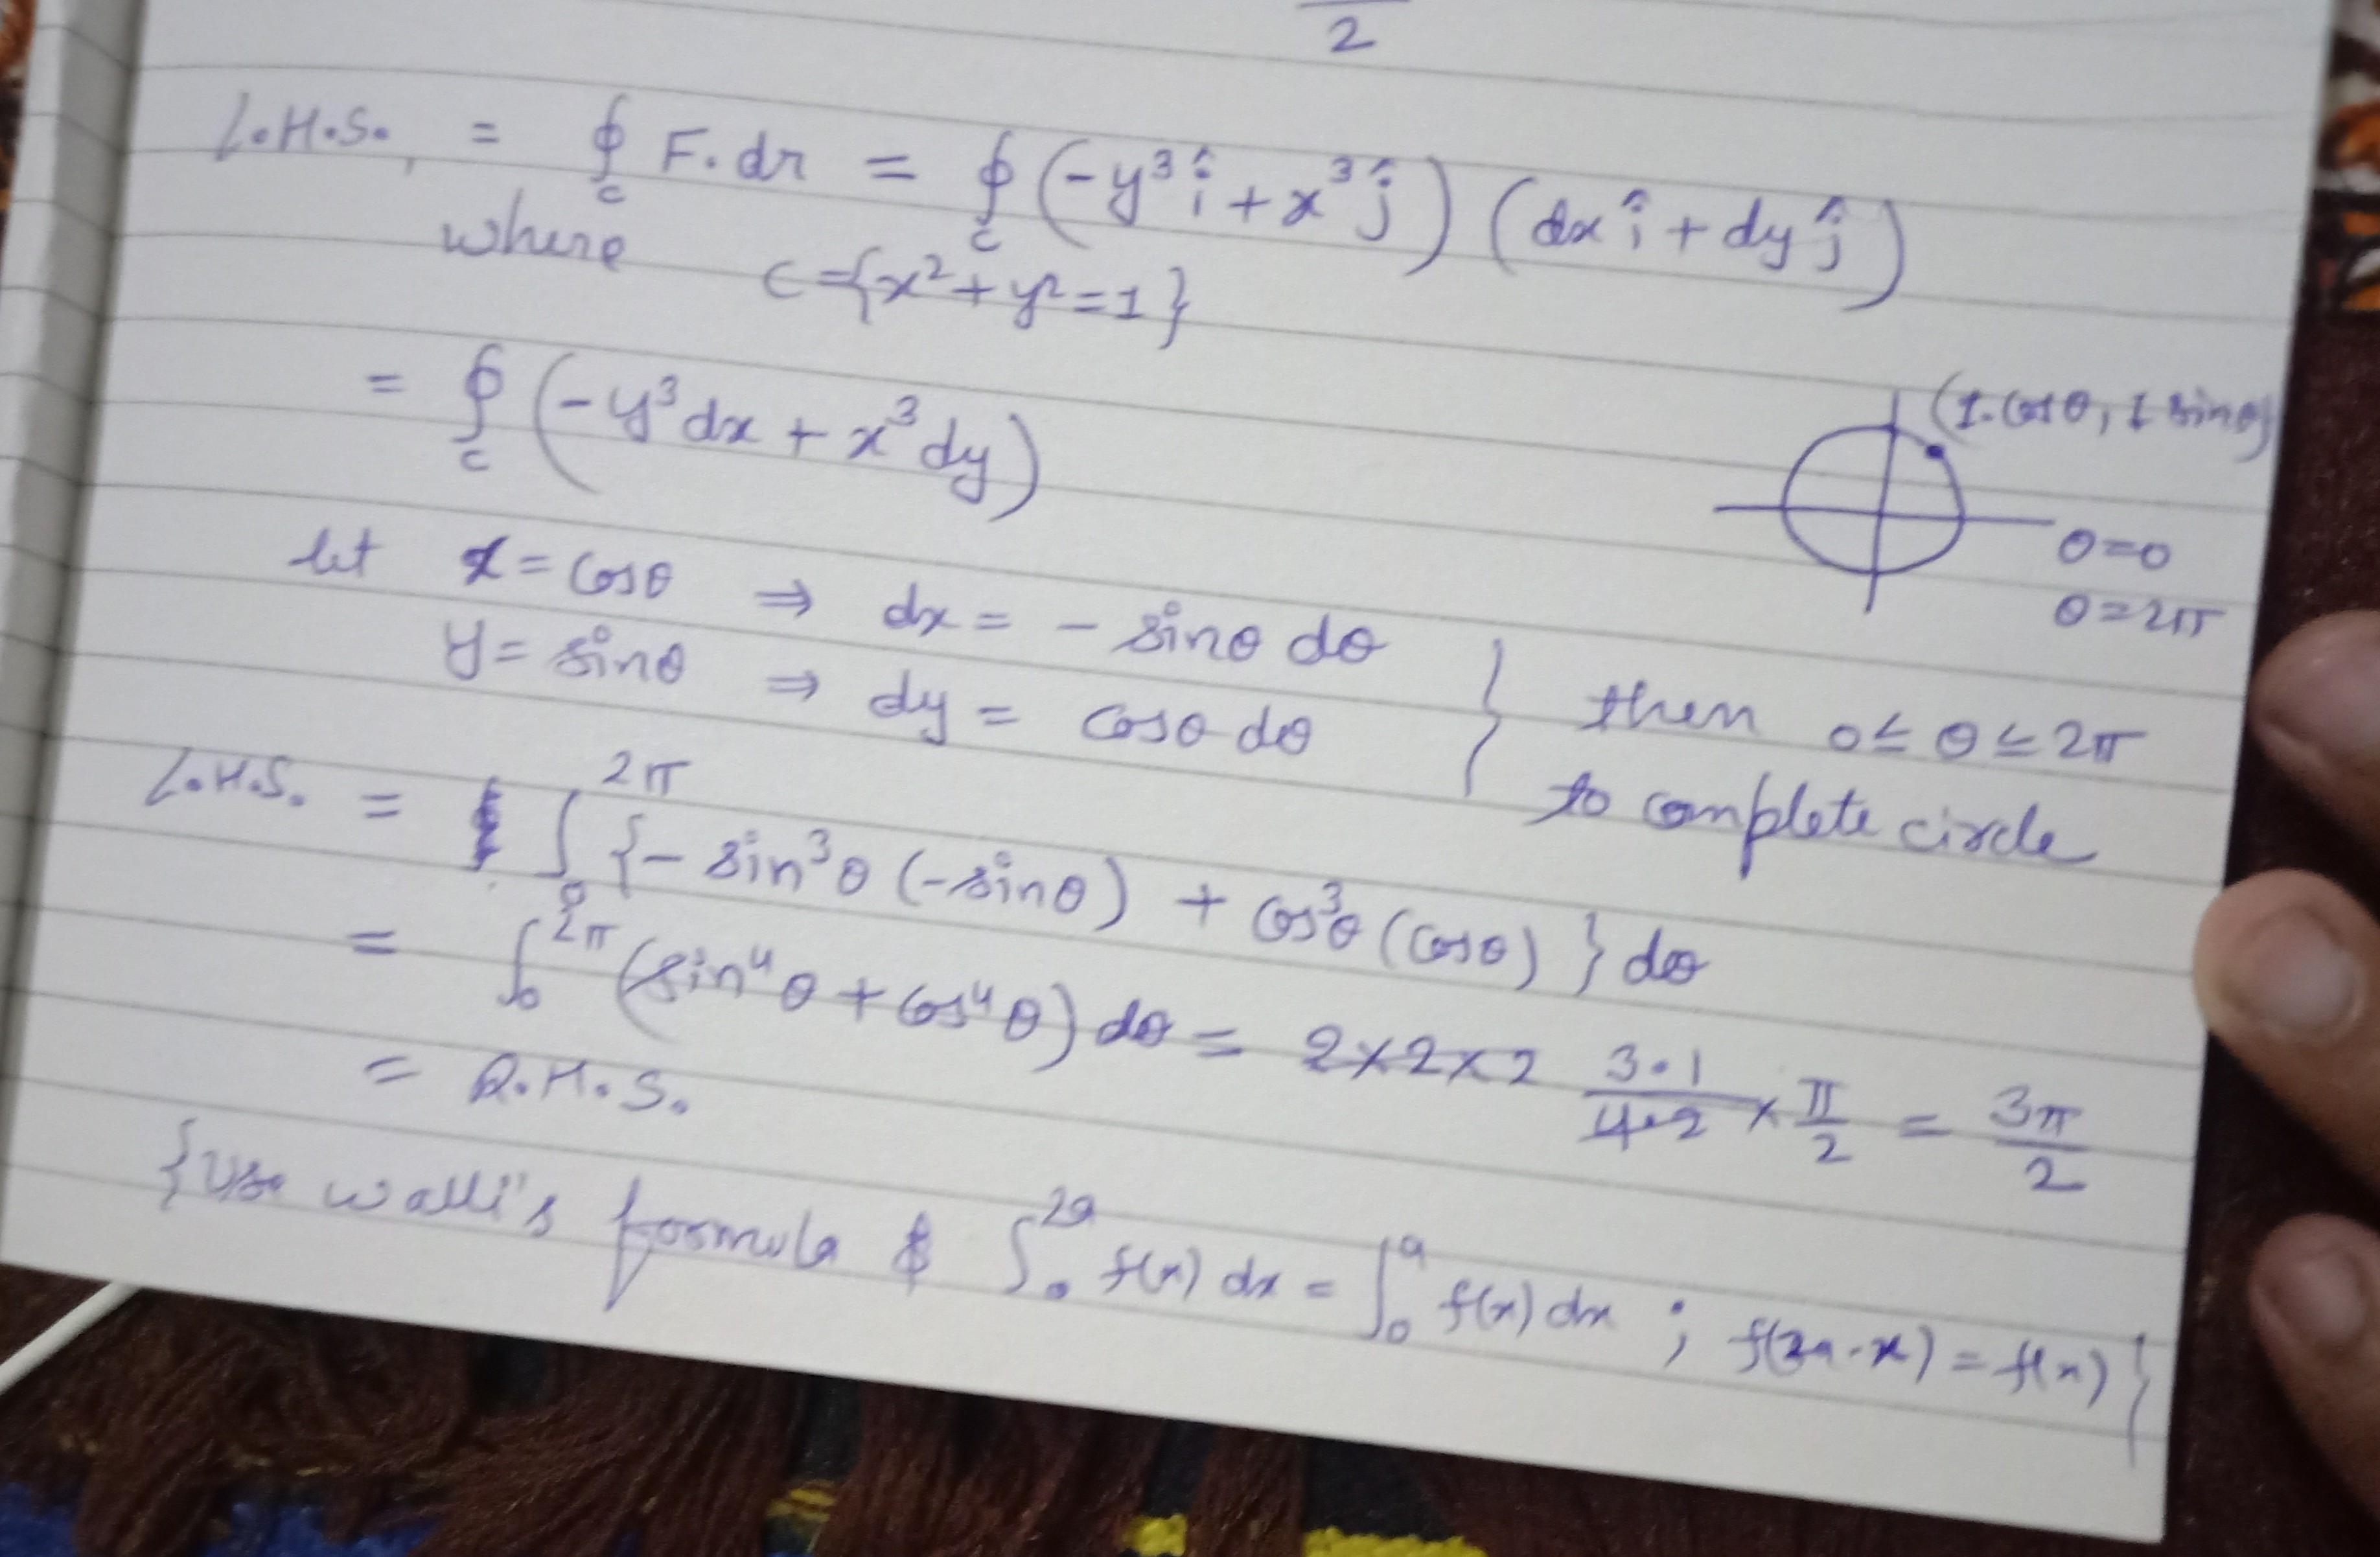 2
L.H.S. = ∮_c F.dr = ∮_c (-y³ î + x³ ĵ) (dx î + dy ĵ)
where c = {x² + y² = 1}
= ∮_c (-y³ dx + x³ dy)
(1.cosθ, 1 sinθ)
θ=0
θ=2π
let x = cosθ ⇒ dx = - sinθ dθ
y = sinθ ⇒ dy = cosθ dθ
} then 0 ≤ θ ≤ 2π
to complete circle
L.H.S. = ∫₀^2π {- sin³θ (-sinθ) + cos³θ (cosθ)} dθ
= ∫₀^2π (sin⁴θ + cos⁴θ) dθ = 2×2×2 (3.1)/(4.2) × π/2 = 3π/2
= R.H.S.
{Use walli's formula & ∫₀^2a f(x) dx = ∫₀^a f(x) dx ; f(2a-x) = f(x)}